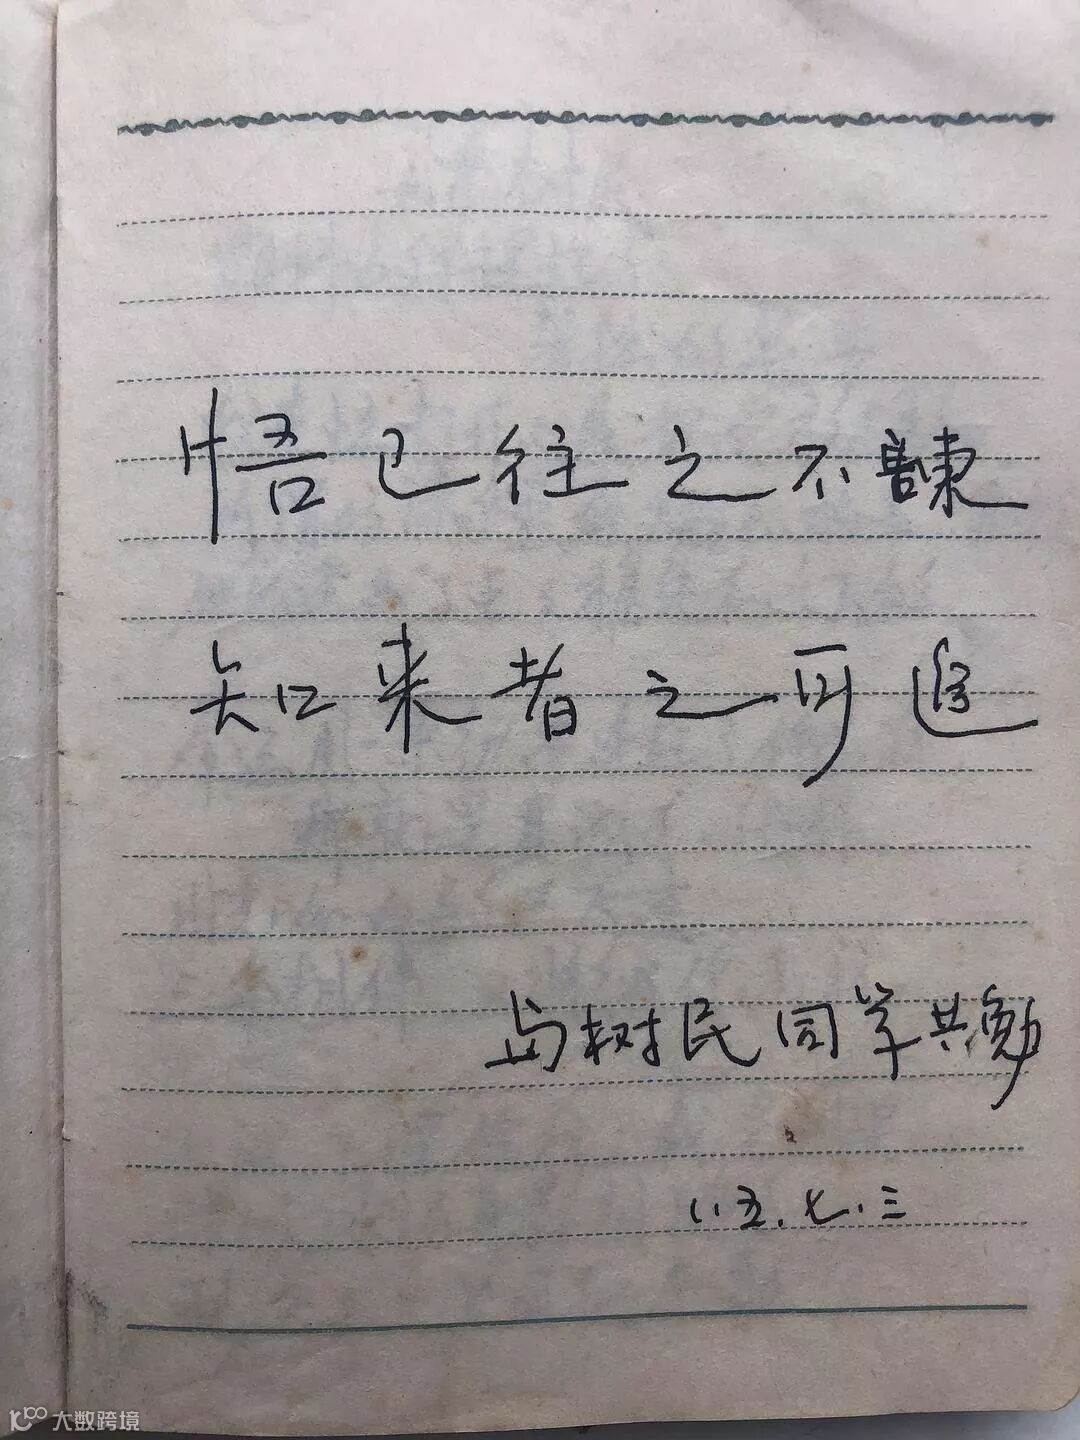 悟已往之不諫
知来者之可追
与树民同学共勉
八五.七.三
大数跨境